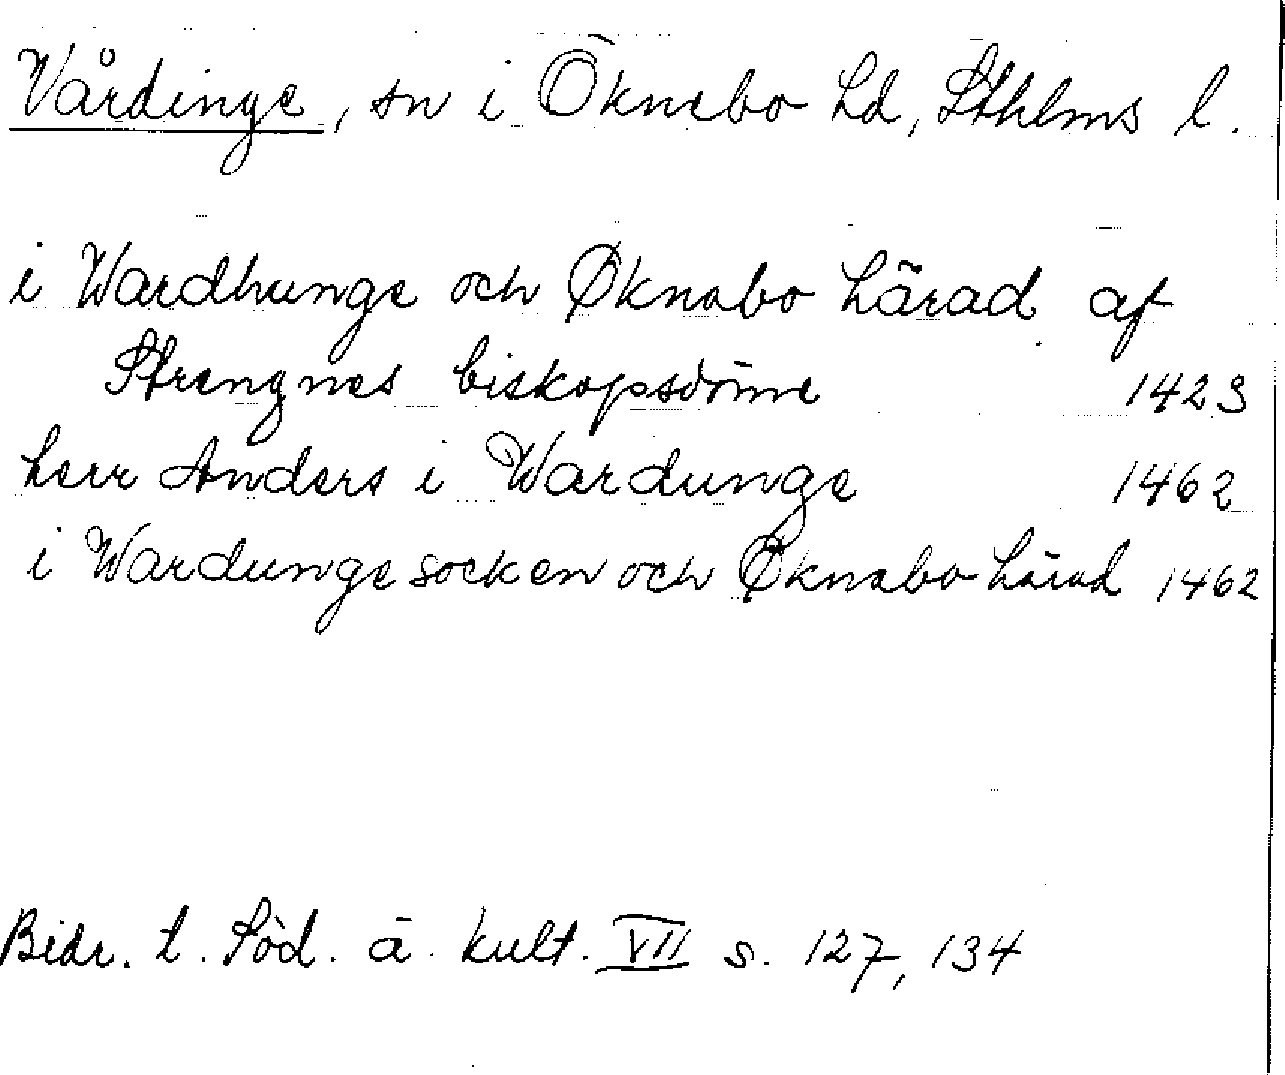 Vårdinge, sn i Öknebo hd, Sthlms l.
i Wardhunge och Øknabo härad af
Strengnes biskopsdöme 1423
herr Anders i Wardunge 1462
i Wardunge socken och Øknabo härad 1462
Bidr. t. Söd. ä. kult. VII s. 127, 134